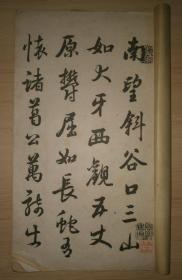 南望斜谷口三山
如犬牙西觀五丈
原鬱屈如長蛇有
懷諸葛公萬騎出